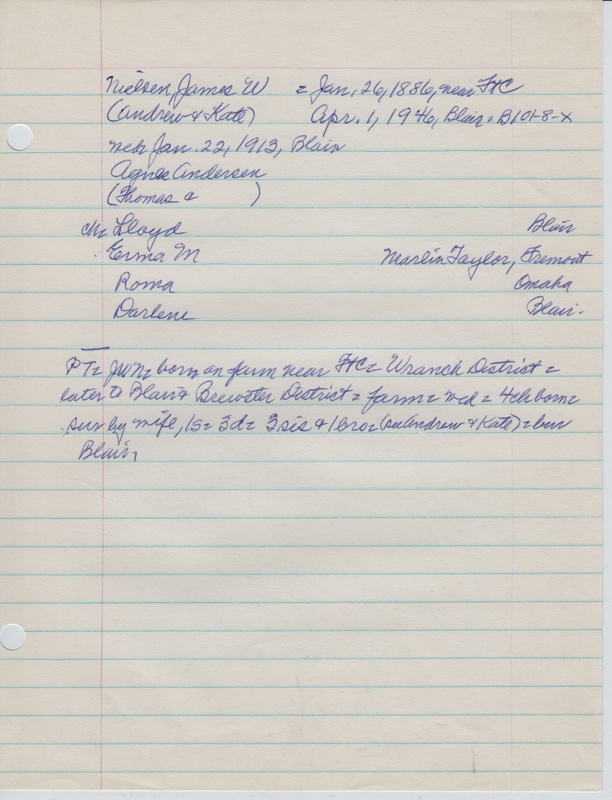 Nielsen, James W = Jan, 26, 1886, near FtC
(Andrew & Kate) Apr. 1, 1946, Blair = B101-8-X
med Jan. 22, 1913, Blair
Agnes Andersen
(Thomas & )
ch= Lloyd Blair
Erma M Marlin Taylor, Fremont
Roma Omaha
Darlene Blair.
PT= JWN= born on farm near FtC= Wranch District =
later to Blair & Brewster District = farm = med = 4ch born =
surv by wife, 1s= 3d= 3 sis & 1 bro= (see Andrew & Kate) = bur
Blair,